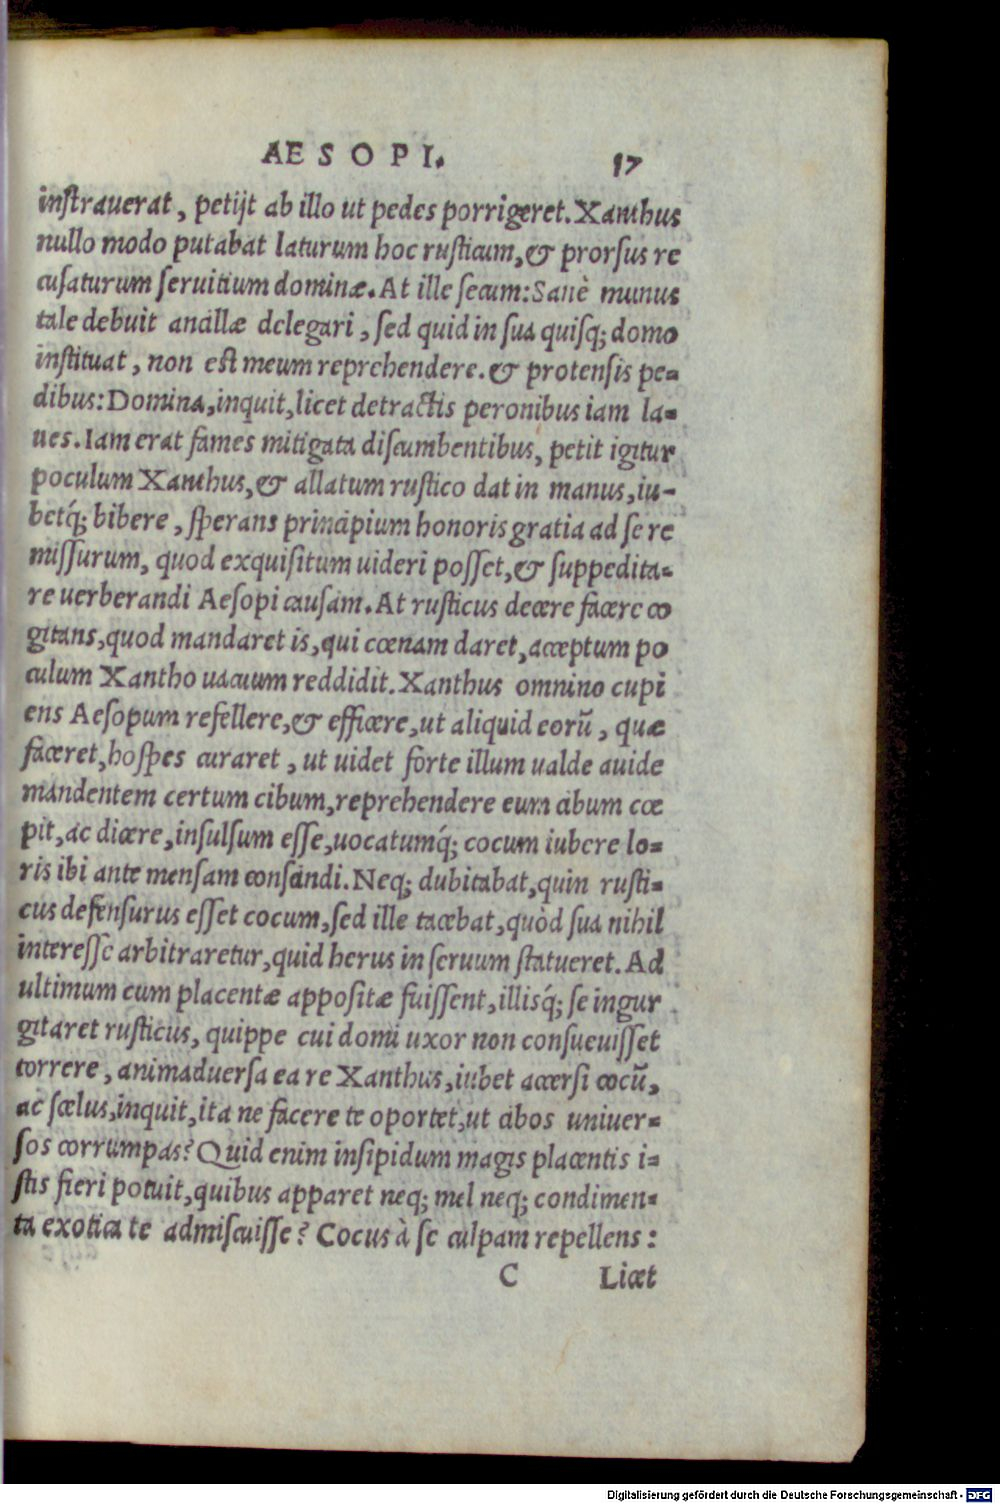 AESOPI. 17
instrauerat, petijt ab illo ut pedes porrigeret. Xanthus
nullo modo putabat laturum hoc rusticum, & prorsus re
cusaturum seruitium dominæ. At ille secum: Sanè munus
tale debuit ancillæ delegari, sed quid in sua quisq; domo
instituat, non est meum reprehendere. & protensis pe-
dibus: Domina, inquit, licet detractis peronibus iam la-
ues. Iam erat fames mitigata discumbentibus, petit igitur
poculum Xanthus, & allatum rustico dat in manus, iu-
betq́; bibere, sperans principium honoris gratia ad se re
missurum, quod exquisitum uideri posset, & suppedita-
re uerberandi Aesopi causam. At rusticus decere facere co
gitans, quod mandaret is, qui cœnam daret, acceptum po
culum Xantho uacuum reddidit. Xanthus omnino cupi
ens Aesopum refellere, & efficere, ut aliquid eorũ, quæ
faceret, hospes curaret, ut uidet forte illum ualde auide
mandentem certum cibum, reprehendere eum cibum cœ
pit, ac dicere, insulsum esse, uocatumq́; cocum iubere lo-
ris ibi ante mensam conscindi. Neq; dubitabat, quin rusti-
cus defensurus esset cocum, sed ille tacebat, quòd sua nihil
interesse arbitraretur, quid herus in seruum statueret. Ad
ultimum cum placentæ appositæ fuissent, illisq́; se ingur
gitaret rusticus, quippe cui domi uxor non consueuisset
torrere, animaduersa ea re Xanthus, iubet acersi cocũ,
ac scelus, inquit, ita ne facere te oportet, ut cibos uniuer-
sos corrumpas? Quid enim insipidum magis placentis i-
stis fieri potuit, quibus apparet neq; mel neq; condimen-
ta exotica te admiscuisse? Cocus à se culpam repellens:
C Licet
Digitalisierung gefördert durch die Deutsche Forschungsgemeinschaft - DFG